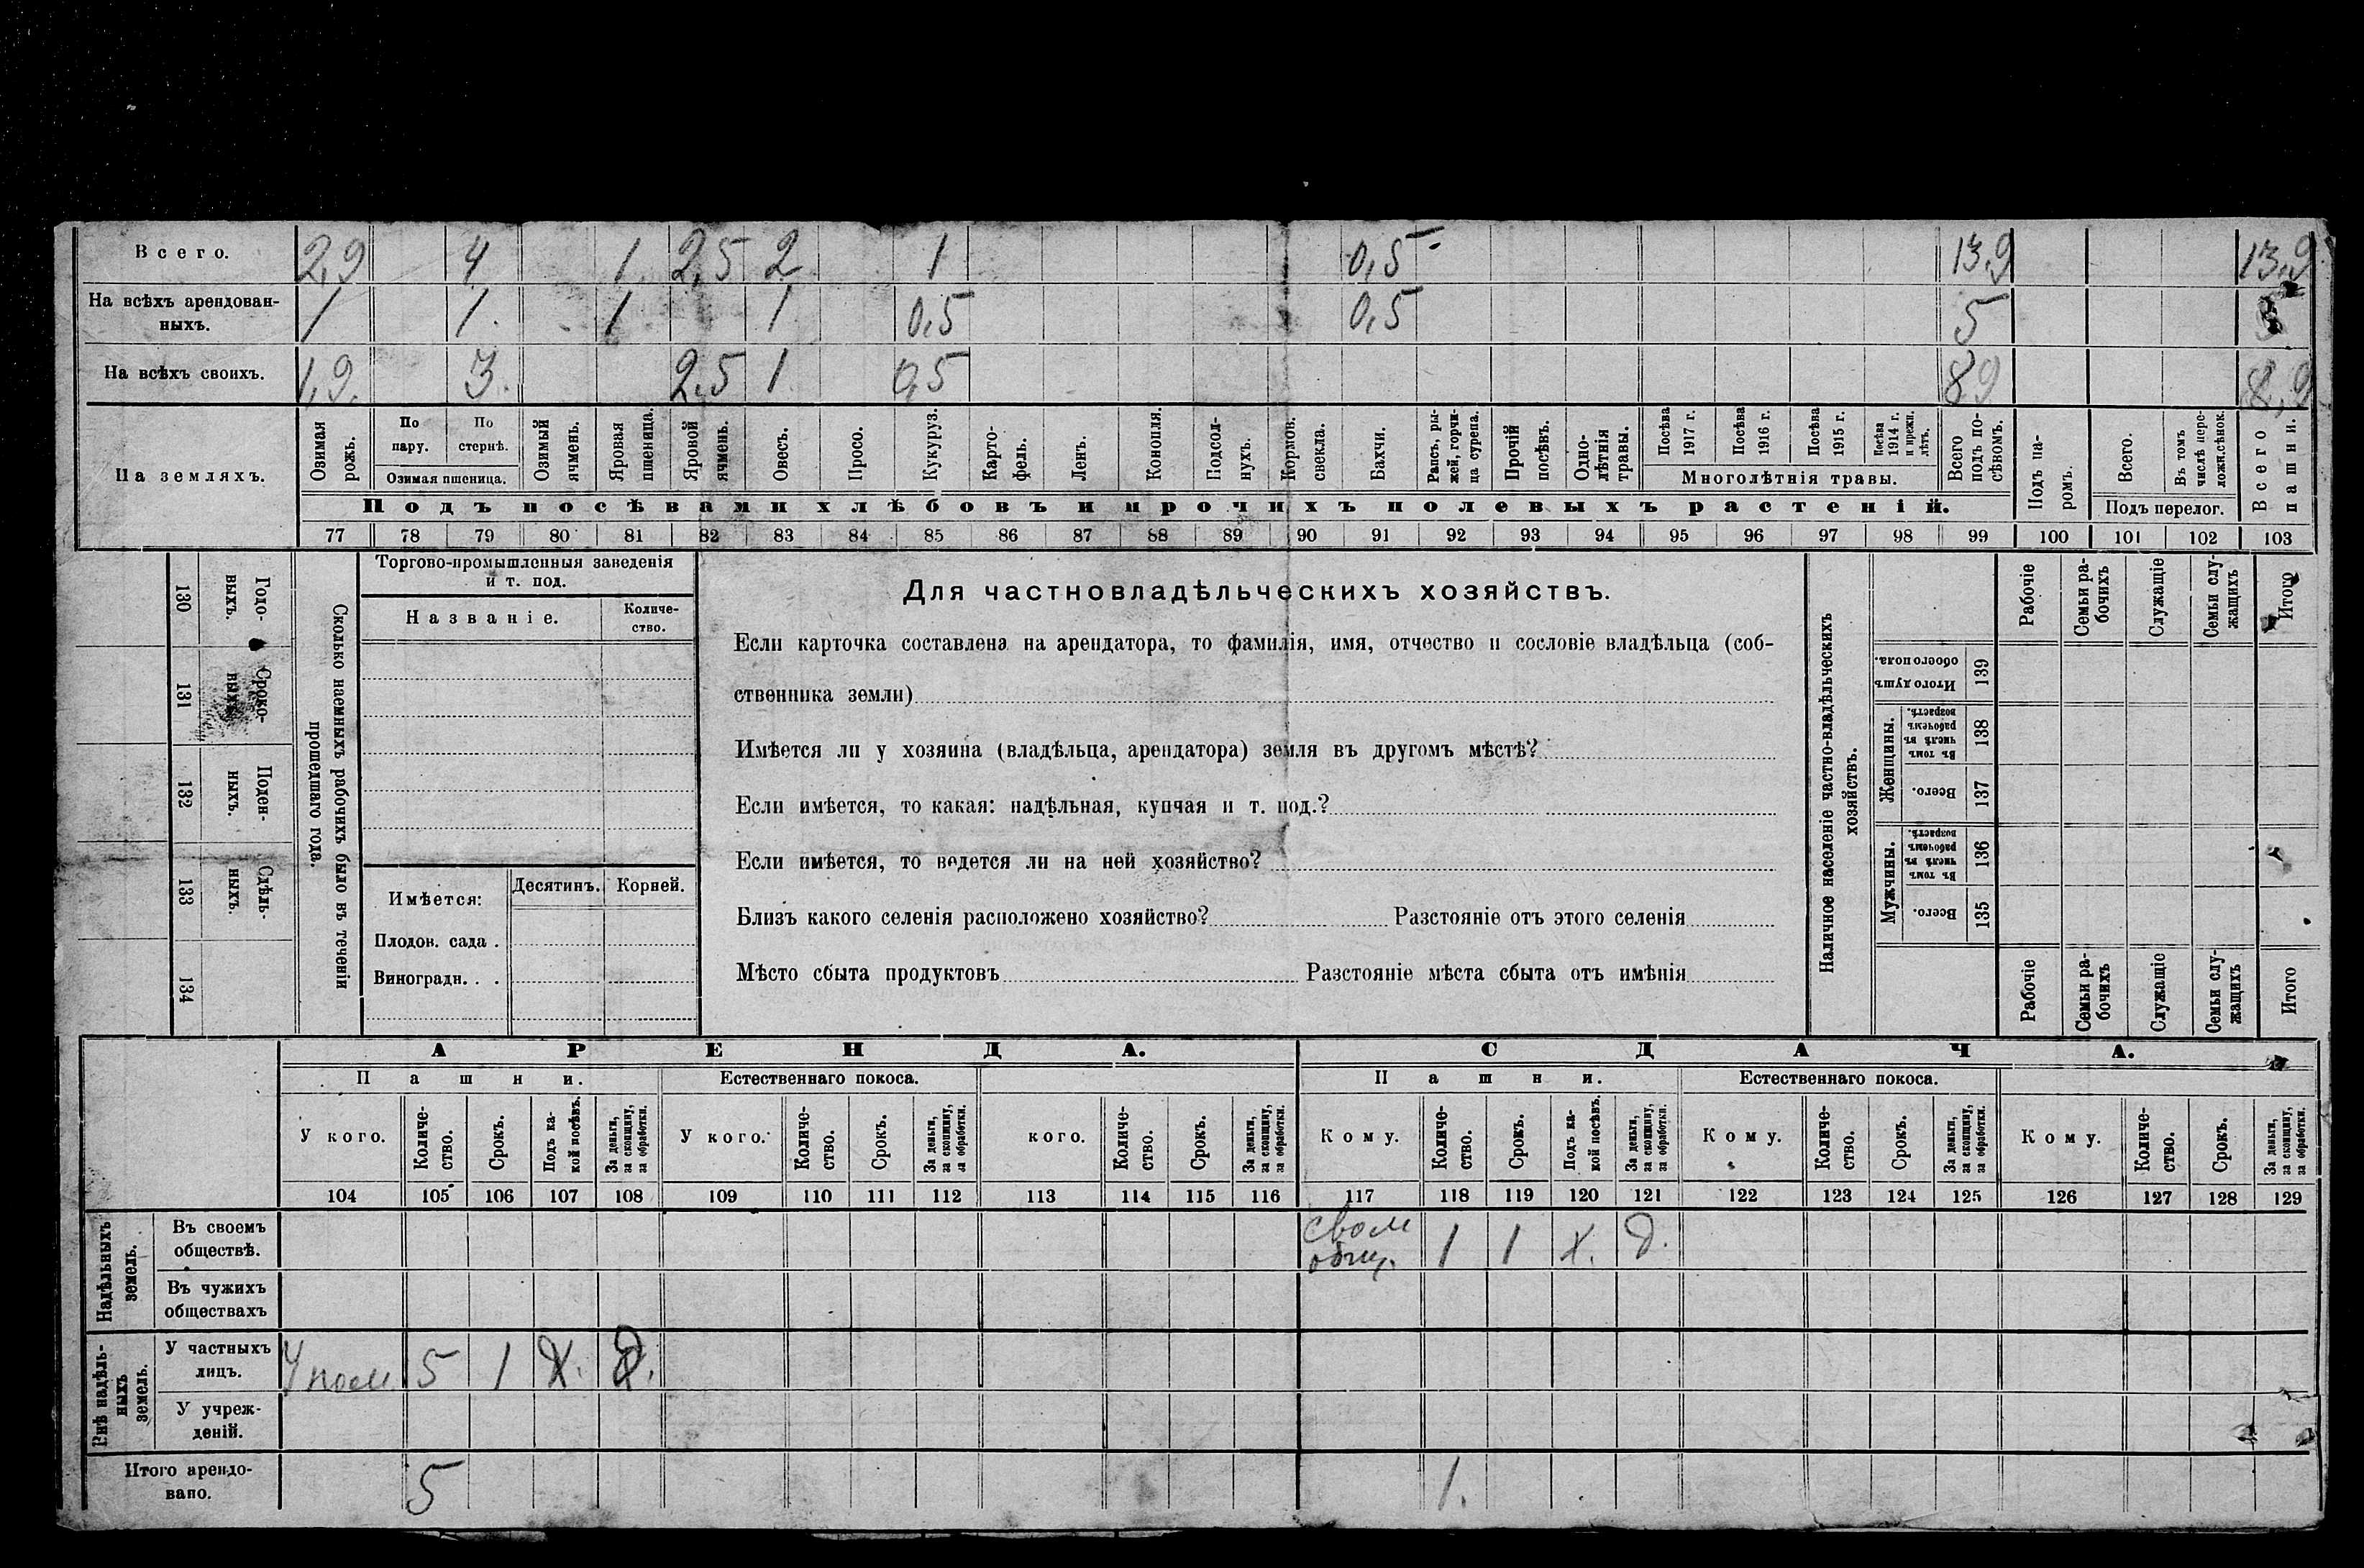 Всего. 2,9 4 1 2,5 2 1 0,5 13,9 13,9
На всѣхъ арендован-
ныхъ. 1 1. 1 1 0,5 0,5 5 5
На всѣхъ своихъ. 1,9. 3. 2,5 1 0,5 8,9 8,9
На земляхъ.
Озимая рожь.
По пару.
По стернѣ.
Озимая пшеница.
Озимый ячмень.
Яровая пшеница.
Яровой ячмень.
Овесъ.
Просо.
Кукуруз.
Карто-
фель.
Ленъ.
Конопля.
Подсол-
нухъ.
Кормов. свекла.
Бахчи.
Рапсъ, ры-
жей, горчи-
ца сурепа.
Прочій посѣвъ.
Одно-
лѣтнія травы.
Посѣва 1917 г.
Посѣва 1916 г.
Посѣва 1915 г.
Посѣва 1914 г. и прежн. лѣтъ.
Многолѣтнія травы.
Всего подъ по-
сѣвомъ.
Подъ па-
ромъ.
Всего.
Въ томъ числѣ пере-
ложн.сѣнок.
Подъ перелог.
Всего пашни.
Подъ посѣвами хлѣбовъ и прочихъ полевыхъ растеній.
77 78 79 80 81 82 83 84 85 86 87 88 89 90 91 92 93 94 95 96 97 98 99 100 101 102 103
130 Годо-
выхъ.
131 Сроко-
ныхъ.
132 Поден-
ныхъ.
133 Сдѣль-
ныхъ.
134
Сколько наемныхъ рабочихъ было въ теченіи
прошедшаго года.
Торгово-промышленныя заведенія
и т. под.
Названіе.
Количе-
ство.
Имѣется:
Десятинъ.
Корней.
Плодов. сада .
Виноградн. . .
Для частновладѣльческихъ хозяйствъ.
Если карточка составлена на арендатора, то фамилія, имя, отчество и сословіе владѣльца (соб-
ственника земли)
Имѣется ли у хозяина (владѣльца, арендатора) земля въ другомъ мѣстѣ?
Если имѣется, то какая: надѣльная, купчая и т. под.?
Если имѣется, то ведется ли на ней хозяйство?
Близъ какого селенія расположено хозяйство? Разстояніе отъ этого селенія
Мѣсто сбыта продуктовъ Разстояніе мѣста сбыта отъ имѣнія
Наличное населеніе частно-владѣльческихъ
хозяйствъ.
Рабочіе
Семьи ра-
бочихъ
Служащіе
Семьи слу-
жащихъ
Итого
Итого душъ обоего пола. 139
Женщины.
Въ томъ числѣ въ рабочемъ возрастѣ. 138
Всего. 137
Мужчины.
Въ томъ числѣ въ рабочемъ возрастѣ. 136
Всего. 135
Рабочіе
Семьи ра-
бочихъ
Служащіе
Семьи слу-
жащихъ
Итого
АРЕНДА. СДАЧА.
Пашни. Естественнаго покоса. Пашни. Естественнаго покоса.
У кого.
Количе-
ство.
Срокъ.
Подъ ка-
кой посѣвъ.
За деньги, за скопщину, за обработки.
У кого.
Количе-
ство.
Срокъ.
За деньги, за скопщину, за обработки.
кого.
Количе-
ство.
Срокъ.
За деньги, за скопщину, за обработки.
Кому.
Количе-
ство.
Срокъ.
Подъ ка-
кой посѣвъ.
За деньги, за скопщину, за обработки.
Кому.
Количе-
ство.
Срокъ.
За деньги, за скопщину, за обработки.
Кому.
Количе-
ство.
Срокъ.
За деньги, за скопщину, за обработки.
104 105 106 107 108 109 110 111 112 113 114 115 116 117 118 119 120 121 122 123 124 125 126 127 128 129
Надѣльныхъ
земель.
Въ своемъ
обществѣ. свом
общ. 1 1 х. д.
Въ чужихъ
обществахъ
Внѣ надѣль-
ныхъ
земель.
У частныхъ
лицъ. У пом. 5 1 х. д.
У учреж-
деній.
Итого арендо-
вано. 5 1.